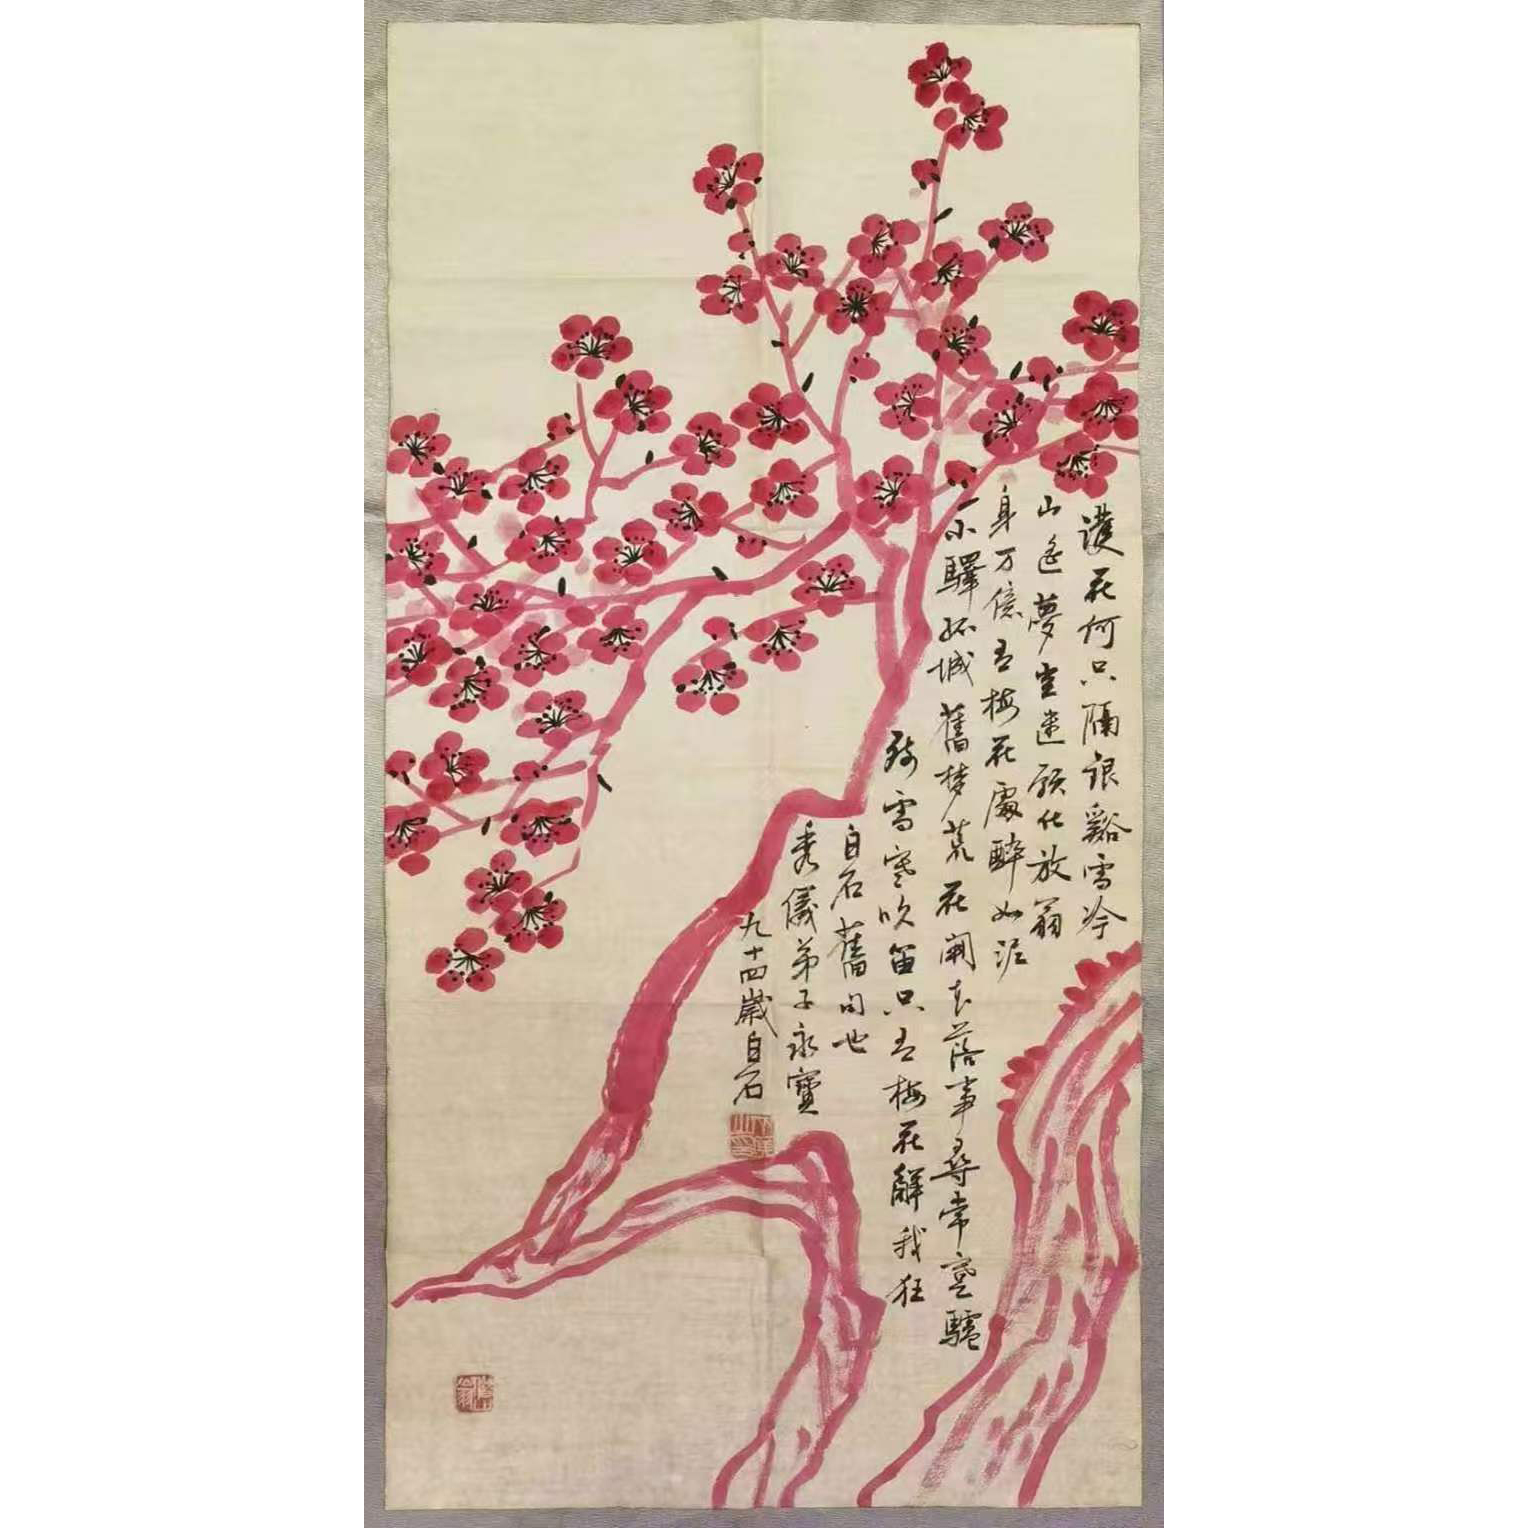 護花何只隔銀谿雪冷
山遙夢空迷願化放翁
身万億有梅花處醉如泥
小驛孤城舊夢荒花開花落事尋常蹇驢
殘雪寒吹笛只有梅花解我狂
白石舊句也
秀儀弟子永寶
九十四歲白石